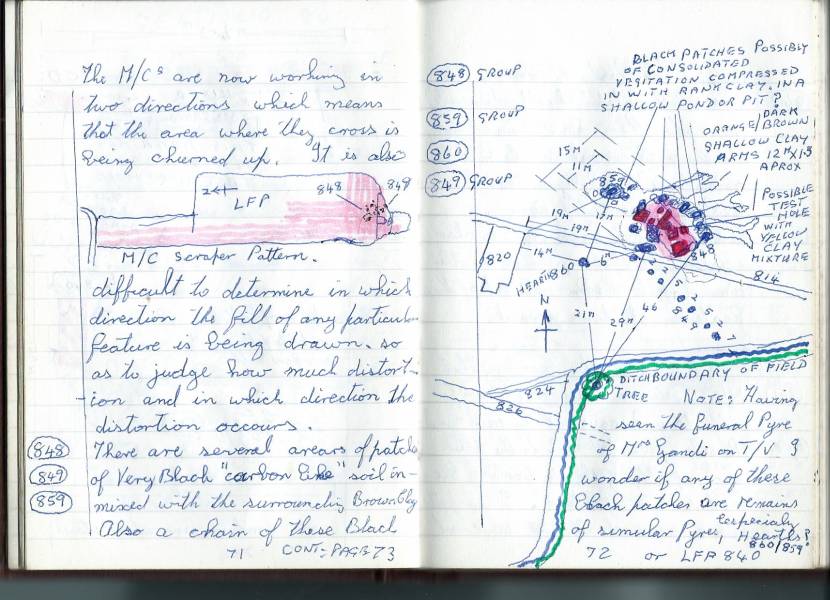 The M/Cs are now working in
two directions which means
that the area where they cross is
being churned up. It is also
2 ←
LFP
848
849
M/C scraper Pattern.
difficult to determine in which
direction the fill of any particular
feature is being drawn. so
as to judge how much distort-
ion and in which direction the
distortion occours.
848 There are several arears of patches
849 of Very Black "carbon like" soil in-
859 mixed with the surrounding Brown Clay
Also a chain of these Black
71 CONT- PAGE 73
848 GROUP
859 GROUP
860
849 GROUP
BLACK PATCHES POSSIBLY
OF CONSOLIDATED
VEGITATION COMPRESSED
IN WITH RANK CLAY. IN A
SHALLOW POND OR PIT?
ORANGE/DARK
BROWN
SHALLOW CLAY
ARMS 12M X 1.5
APROX
POSSIBLE
TEST
HOLE
WITH
YELLOW
CLAY
MIXTURE
15M
11M
859
19M
17M
19M
14M
6M
820
HEARTH 860
848
849
814
N
21M
29M
46
824
826
DITCH BOUNDARY OF FIELD
TREE
NOTE: Having
seen the funeral Pyre
of Mrs Gandi on T/V I
wonder if any of these
black patches are remains
of simular Pyres, especialy Hearths?
860/859?
72 or LFP 840